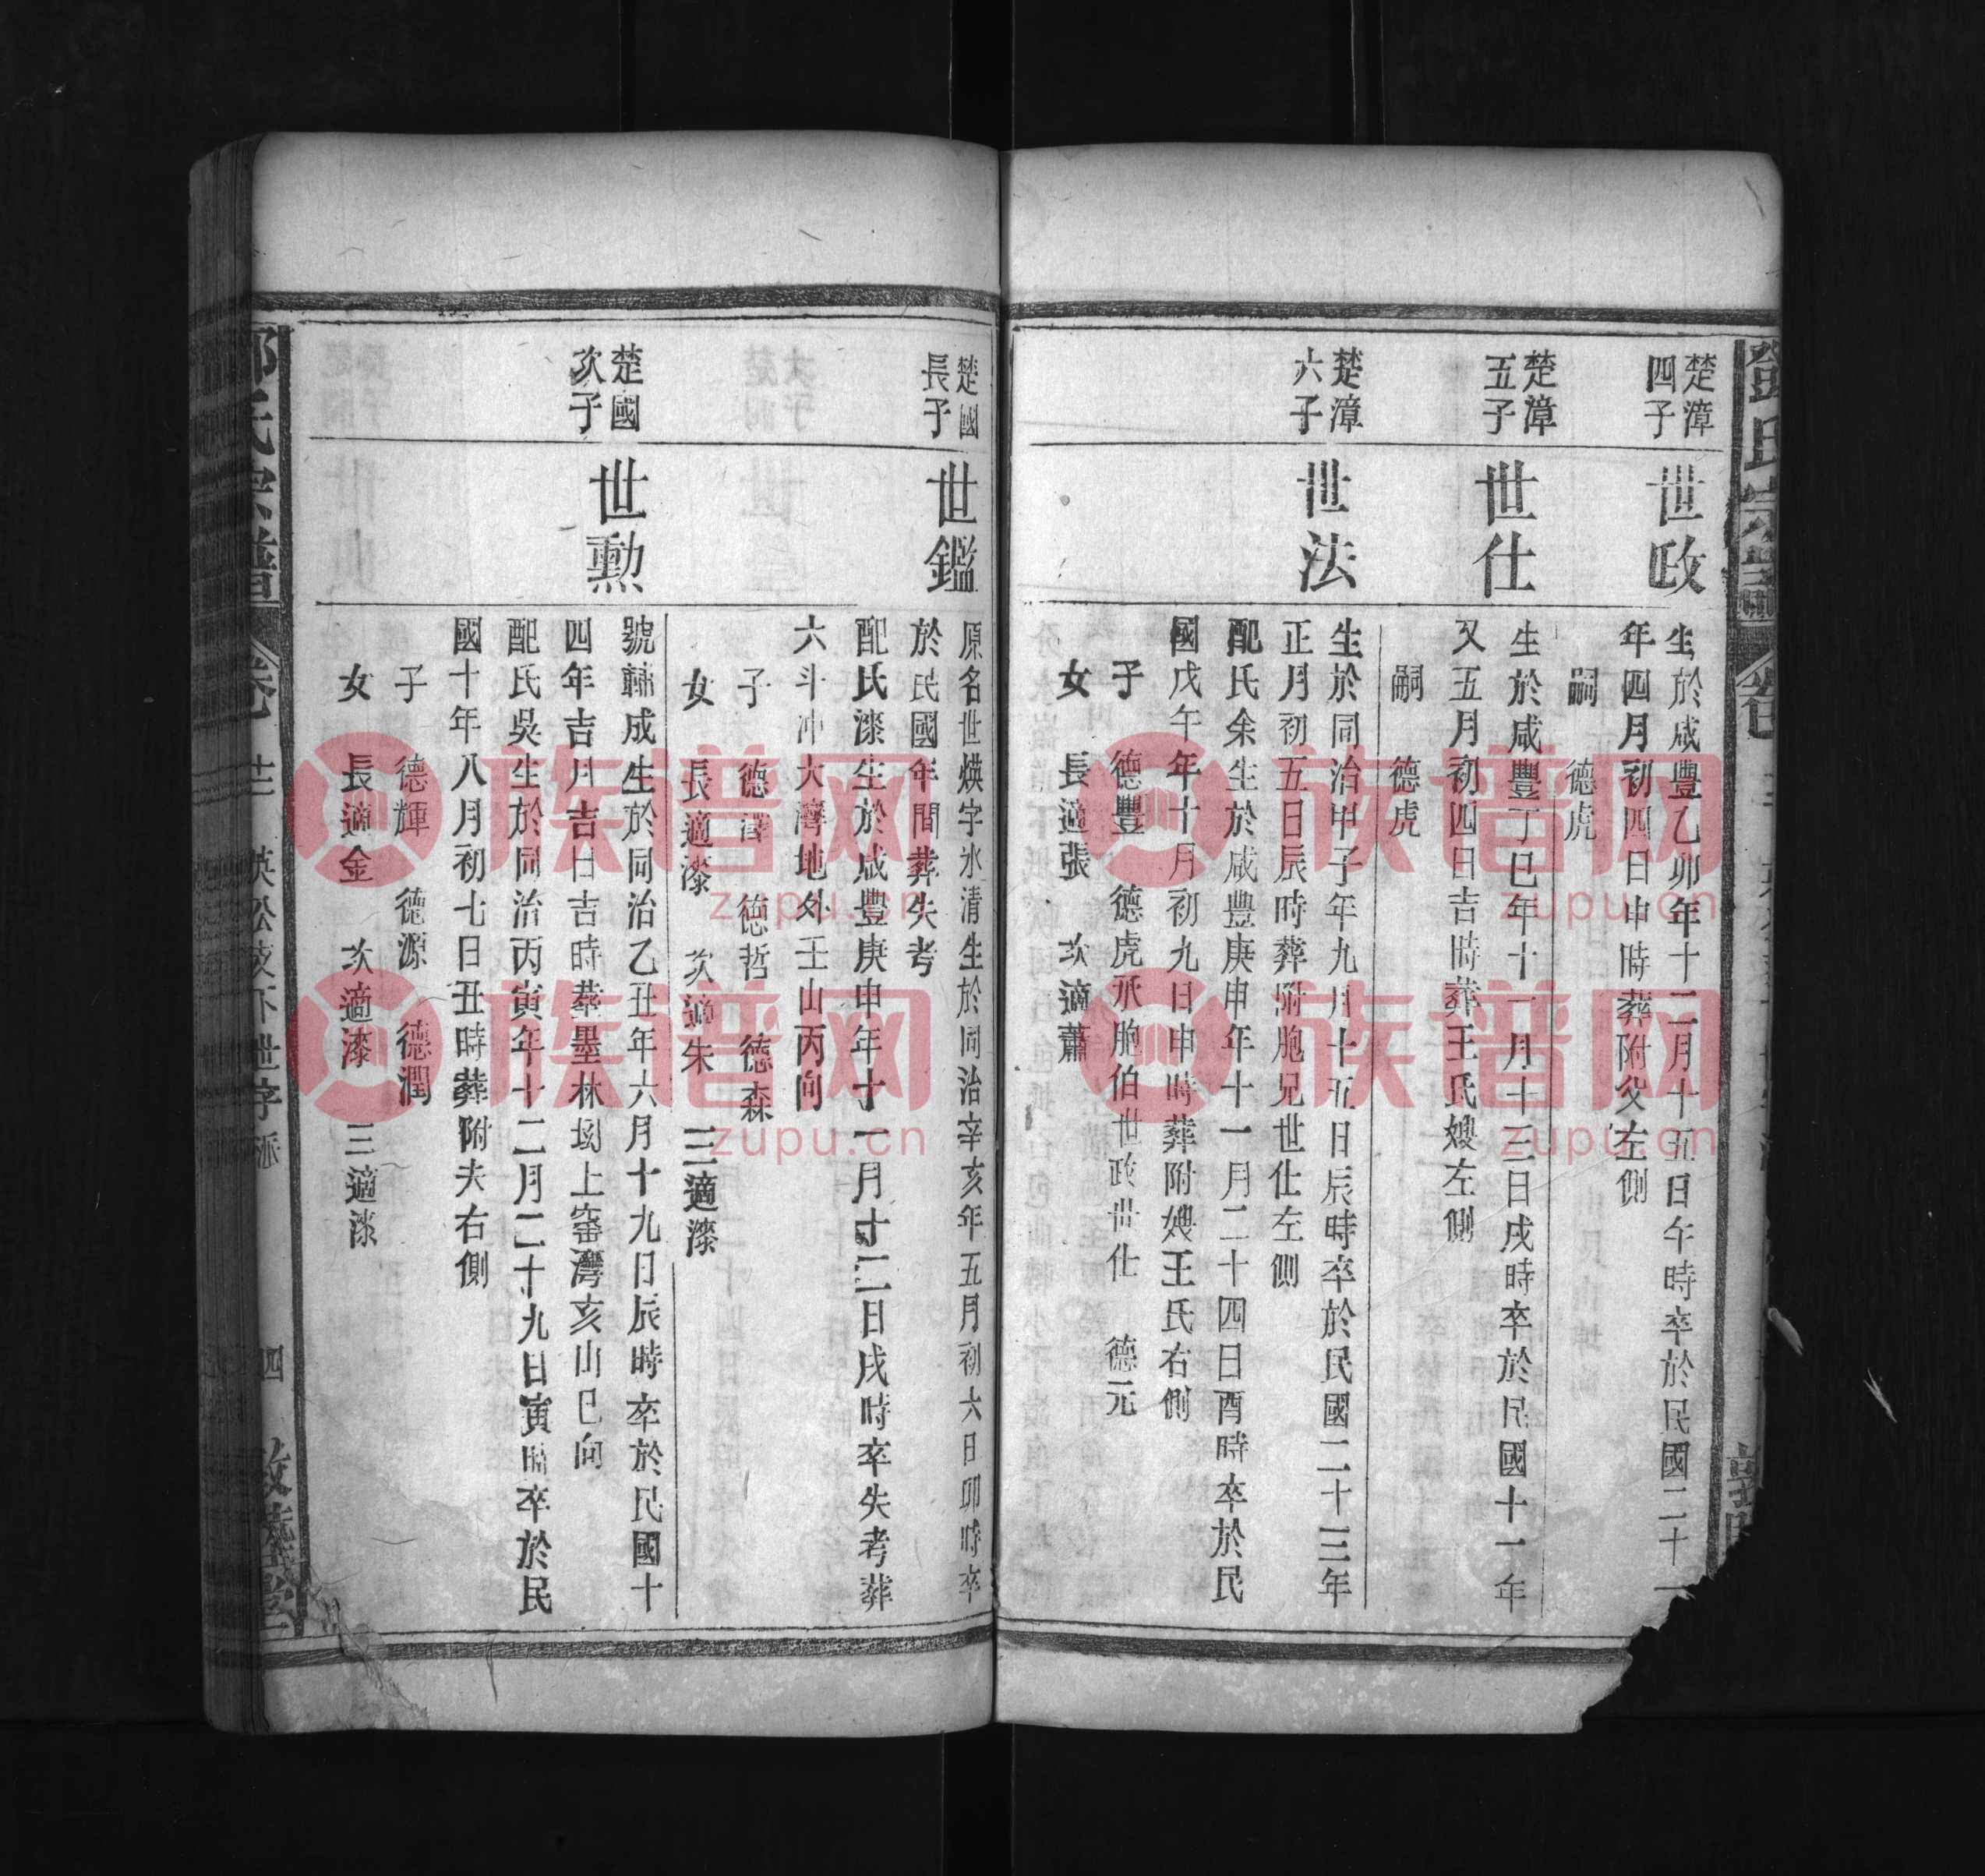 鄧氏宗譜
楚漳
四子
世政
生於咸豐乙卯年十二月十五日午時卒於民國二十一
年四月初四日申時葬附父左側
嗣 德虎
楚漳
五子
世仕
生於咸豐丁巳年十一月十三日戌時卒於民國十一年
又五月初四日吉時葬王氏嫂左側
嗣 德虎
楚漳
六子
世法
生於同治甲子年九月十五日辰時卒於民國二十三年
正月初五日辰時葬附胞兄世仕左側
配氏余生於咸豐庚申年十一月二十四日酉時卒於民
國戊午年十月初九日申時葬附嫂王氏右側
子 德豐 德虎承胞伯世政世仕 德元
女 長適張 次適蕭
楚國
長子
世鑑
原名世煐字氷清生於同治辛亥年五月初六日卯時卒
於民國年間葬失考
配氏漆生於咸豐庚申年十一月十二日戌時卒失考葬
六斗冲大灣地外壬山丙向
子 德澤 德哲 德森
女 長適漆 次適朱 三適漆
楚國
次子
世勲
號輔成生於同治乙丑年六月十九日辰時卒於民國十
四年吉月吉日吉時葬墨林塅上窑灣亥山巳向
配氏吳生於同治丙寅年十二月二十九日寅時卒於民
國十年八月初七日丑時葬附夫右側
子 德輝 德源 德潤
女 長適金 次適漆 三適漆
氏宗譜
英公支下世字派
四
敦睦堂
族谱网
zupu.cn
族谱网
zupu.cn
族谱网
zupu.cn
族谱网
zupu.cn